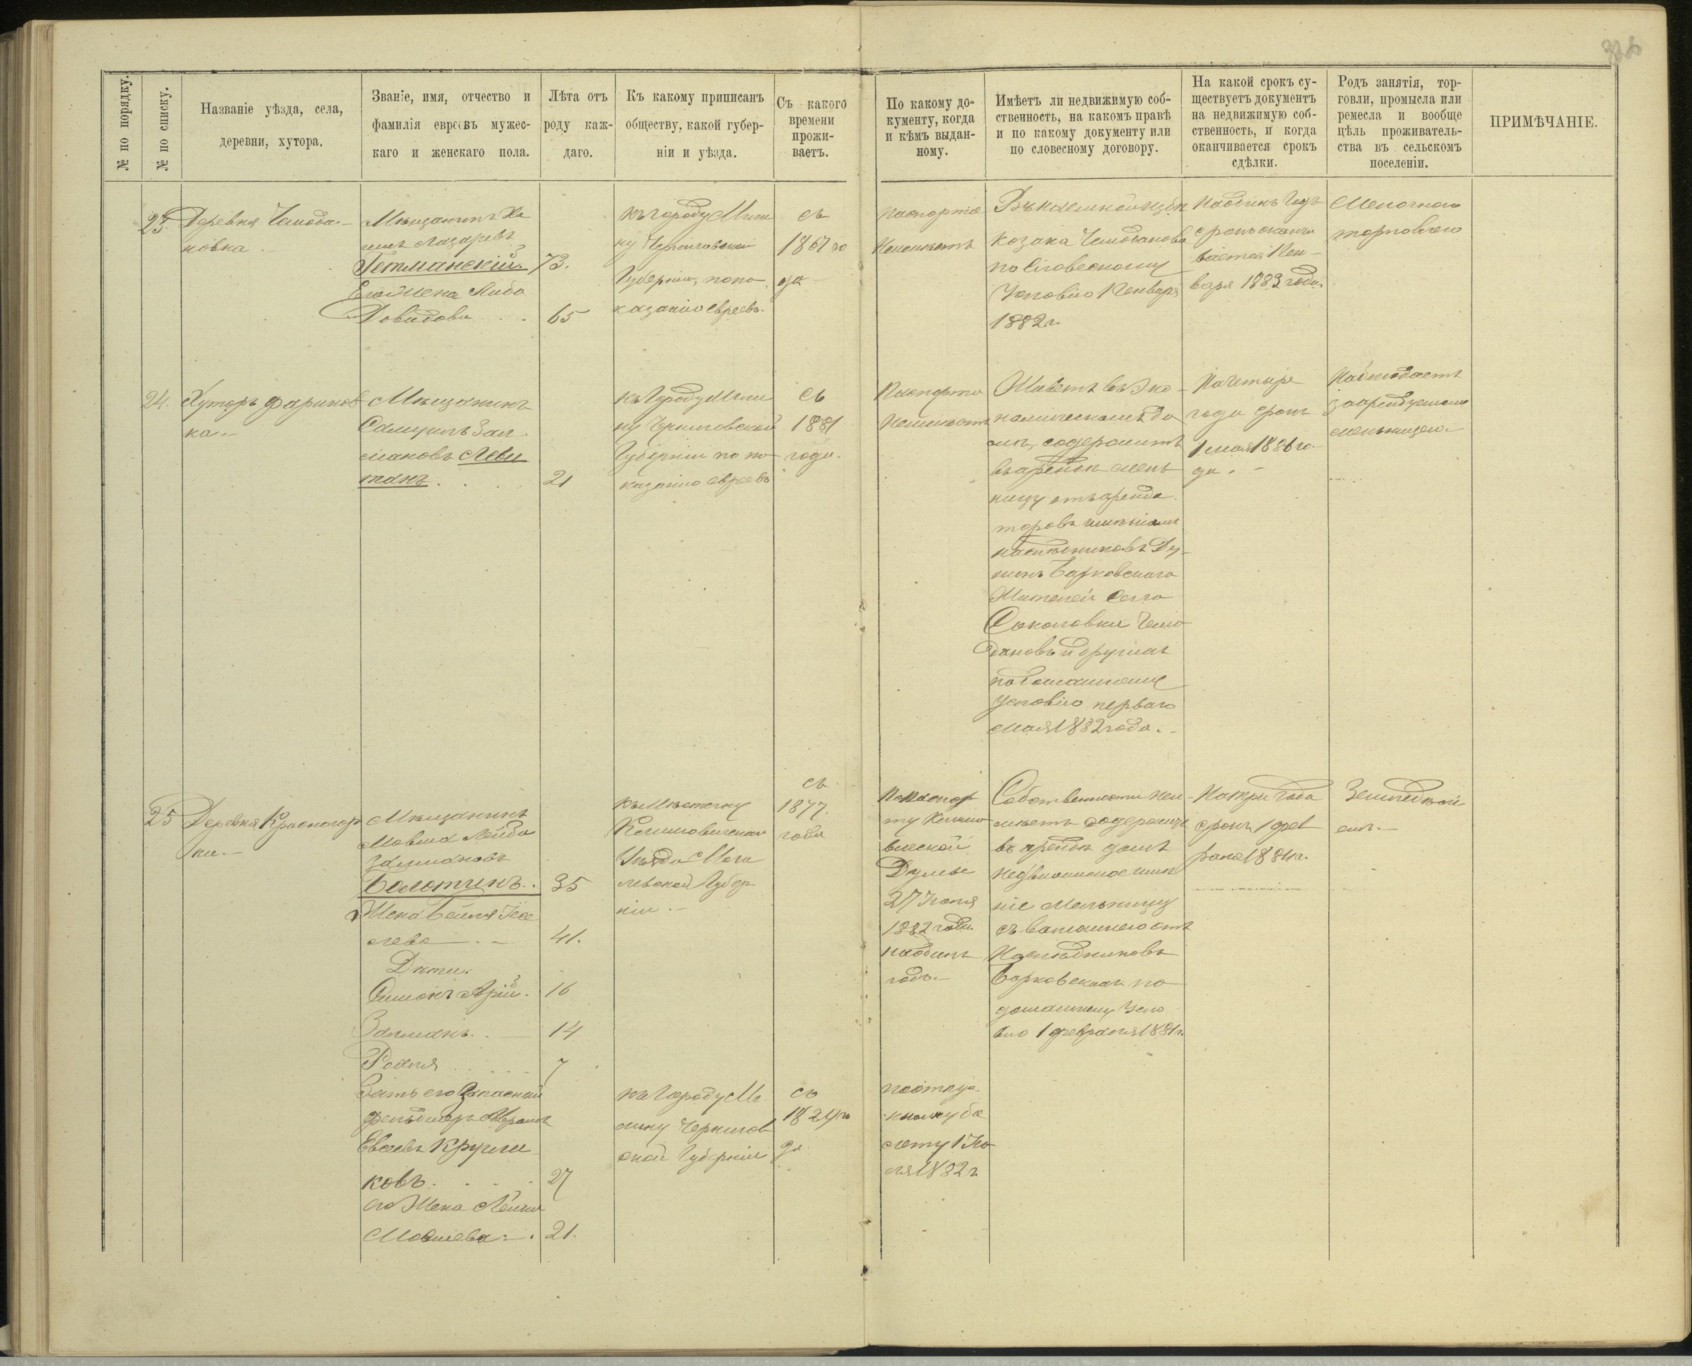 № по порядку.
№ по списку.
Названіе уѣзда, села,
деревни, хутора.
Званіе, имя, отчество и
фамилія евреевъ мужес-
каго и женскаго пола.
Лѣта отъ
роду каж-
даго.
Къ какому приписанъ
обществу, какой губер-
ніи и уѣзда.
Съ какого
времени
прожи-
ваетъ.
По какому до-
кументу, когда
и кѣмъ выдан-
ному.
Имѣетъ ли недвижимую соб-
ственность, на какомъ правѣ
и по какому документу или
по словесному договору.
На какой срокъ су-
ществуетъ документъ
на недвижимую соб-
ственность, и когда
оканчивается срокъ
сдѣлки.
Родъ занятія, тор-
говли, промысла или
ремесла и вообще
цѣль проживатель-
ства въ сельскомъ
поселеніи.
ПРИМѢЧАНІЕ.
23.
Деревня Чемода-
новка
Мѣщанинъ
Лазаревъ
Гетманскій 73.
Его Жена Либа
Довидова 65
Къ городу Мгли
ну Черниговской
Губерніи, по по
казанію евреевъ.
съ
1867 го
да
Паспорта
Неимѣетъ
козака Чемоданова
по Словесному
Условію 1 Января
1882 г.
На одинъ годъ
срокъ оканчи
вается 1 Ян-
варя 1883 года.
Мелочною
торговлею
24.
Хуторъ Фаринов
ка
Мѣщанинъ
Самуилъ Зал
мановъ Леви
танъ 21
Къ Городу Мгли
ну Черниговской
Губерніи по по
казанію евреевъ
Съ
1881
года.
Паспорта
Неимѣетъ
Живетъ въ эко-
номическомъ до
мѣ, содержитъ
въ арендѣ мель
ницу отъ аренда
торовъ имѣнія
наслѣдниковъ Ду-
нинъ Барковскаго
Жителей Села
Соколовки Чемо
дановъ и другихъ
по домашнему
Условію перваго
мая 1882 года.
На четыре
года срокъ
1 мая 1886 го
да.
Наблюдаетъ
за арендуемою
мельницею
25
Деревня Красногор
ки.
Мѣщанинъ
Мовша Лейба
Залмановъ
Болотинъ. 35
Жена Бейля
лева 41.
Дѣти:
Симонъ Арій. 16
Залманъ 14
Рахля 7
Зять его Запасный
фельдшеръ Абрамъ
Евсѣевъ Кругли
ковъ 27
его Жена
Мовшева 21.
Къ Мѣстечку
Климовичскаго
Уѣзда Моги
левской Губер
ніи
Къ Городу М
глину Чернигов
ской Губерніи
съ
1877
года
съ
1882 го
да
По паспор
ту
вичской
Думы
27 Іюля
1882 года
на одинъ
годъ.
По отпу
скному би
лету 1 Ію
ля 1882 г
Собственности неи
мѣетъ содержитъ
въ арендѣ домъ
недвижимое имѣ
ніе Мельницу
съ
Наслѣдниковъ
Барковскихъ по
домашнему Усло
вію 1 февраля 1881 г.
На три года
срокъ 1 фев
раля 1884 г.